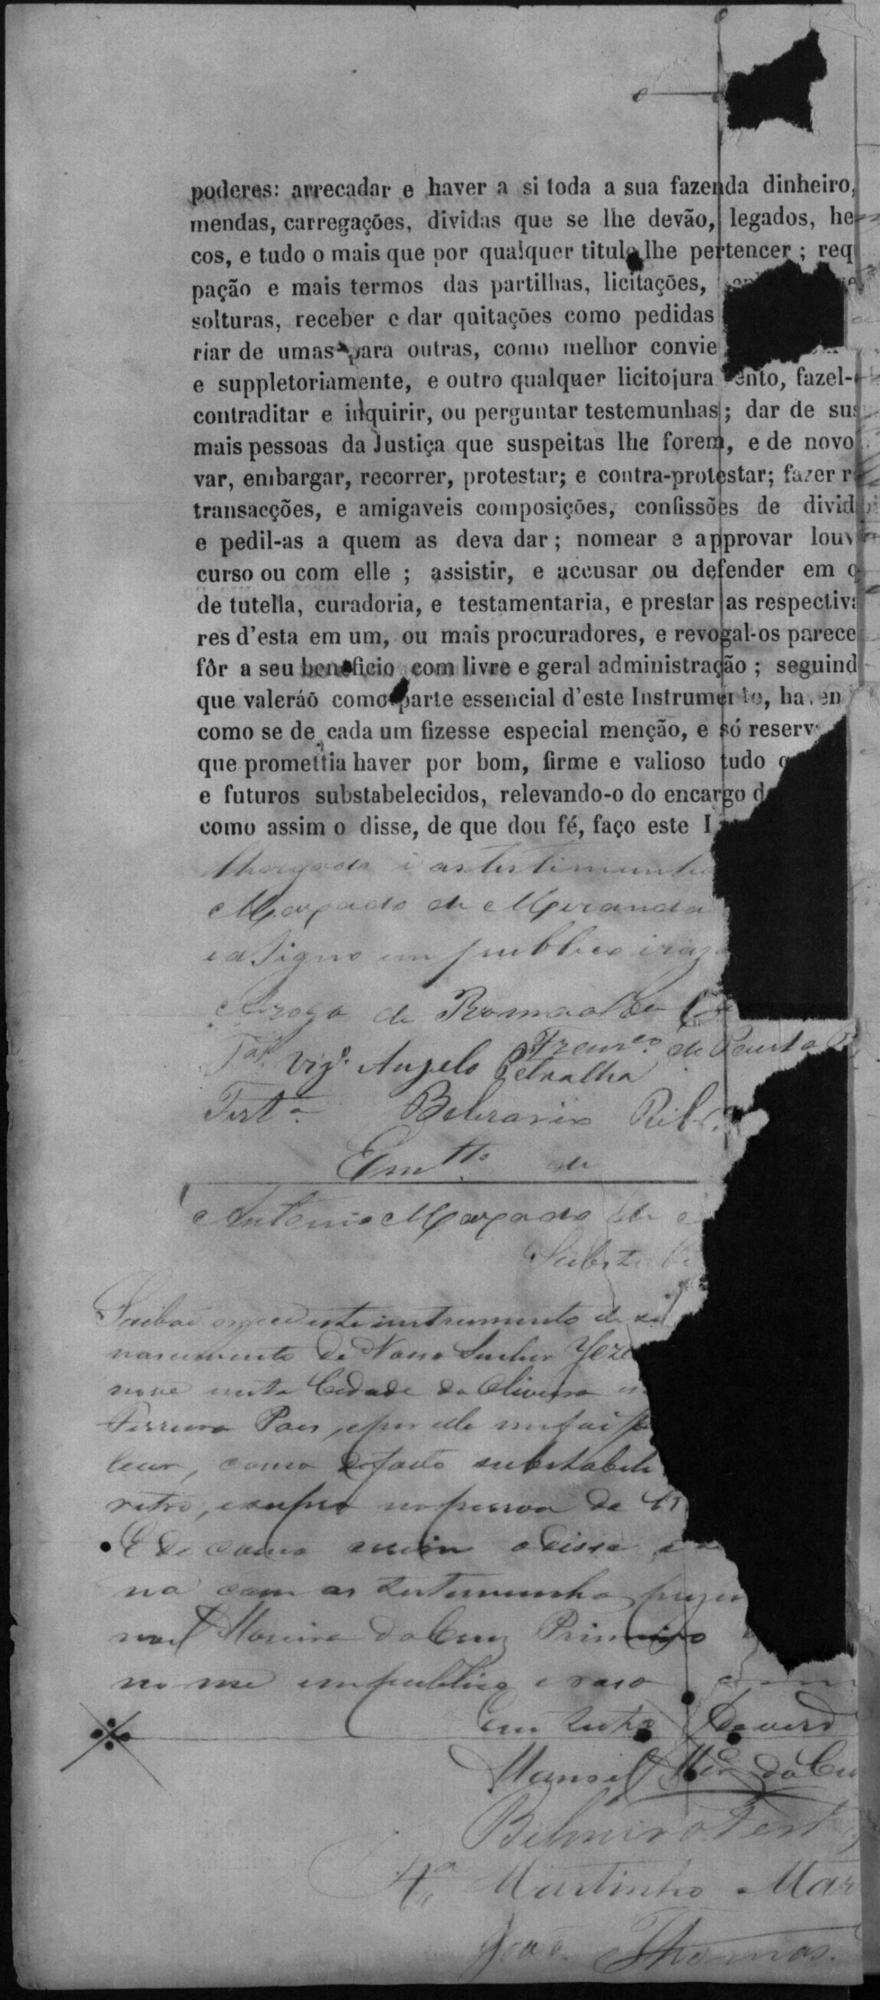 poderes: arrecadar e haver a si toda a sua fazenda dinheiro,
mendas, carregações, dividas que se lhe devão, legados, he
cos, e tudo o mais que por qualquer titulo lhe pertencer ; req
pação e mais termos das partilhas, licitações,
solturas, receber e dar quitações como pedidas
riar de umas para outras, como melhor convie
e suppletoriamente, e outro qualquer licitojura ento, fazel-
contraditar e inquirir, ou perguntar testemunhas ; dar de sus
mais pessoas da Justiça que suspeitas lhe forem, e de novo
var, embargar, recorrer, protestar; e contra-protestar; fazer r
transacções, e amigaveis composições, confissões de divid
e pedil-as a quem as deva dar ; nomear e approvar louv
curso ou com elle ; assistir, e accusar ou defender em q
de tutella, curadoria, e testamentaria, e prestar as respectiva
res d'esta em um, ou mais procuradores, e revogal-os parece
fôr a seu beneficio com livre e geral administração ; seguind
que valeráõ como parte essencial d'este Instrumento, haven
como se de cada um fizesse especial menção, e só reserv
que promettia haver por bom, firme e valioso tudo q
e futuros substabelecidos, relevando-o do encargo d
como assim o disse, de que dou fé, faço este I
as testimunha
Morgado de Miranda
e asigno em publico e raz
Arogo de Romaalda
Franco. de Paula
Vigº. Angelo Petralha
Testª. Belizario Rib
Em tto de
Antonio Morgado de
Substabe
Saibaõ este instrumento de su
nascimento de Nosso Senhor Jezu
nove nesta Cidade da Oliveira
Ferreira Paes, e por elle me foi
lecer, como de facto substabele
retro, e supra na pessoa de
E de como assim o disse
na com as testemunhas
noel Moreira da Cruz Primeiro
no me em publico e raso
Em testo da verd
Manoel Mrª da Cru
Belmiro
Martinho Mar
João Thomas.